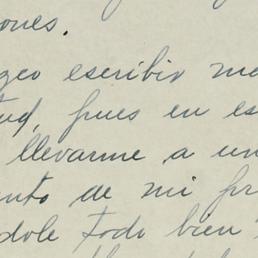 ones.
zco escribio ma
tud, pues en es
llevarme a un
nto de mi pr
dole todo bien